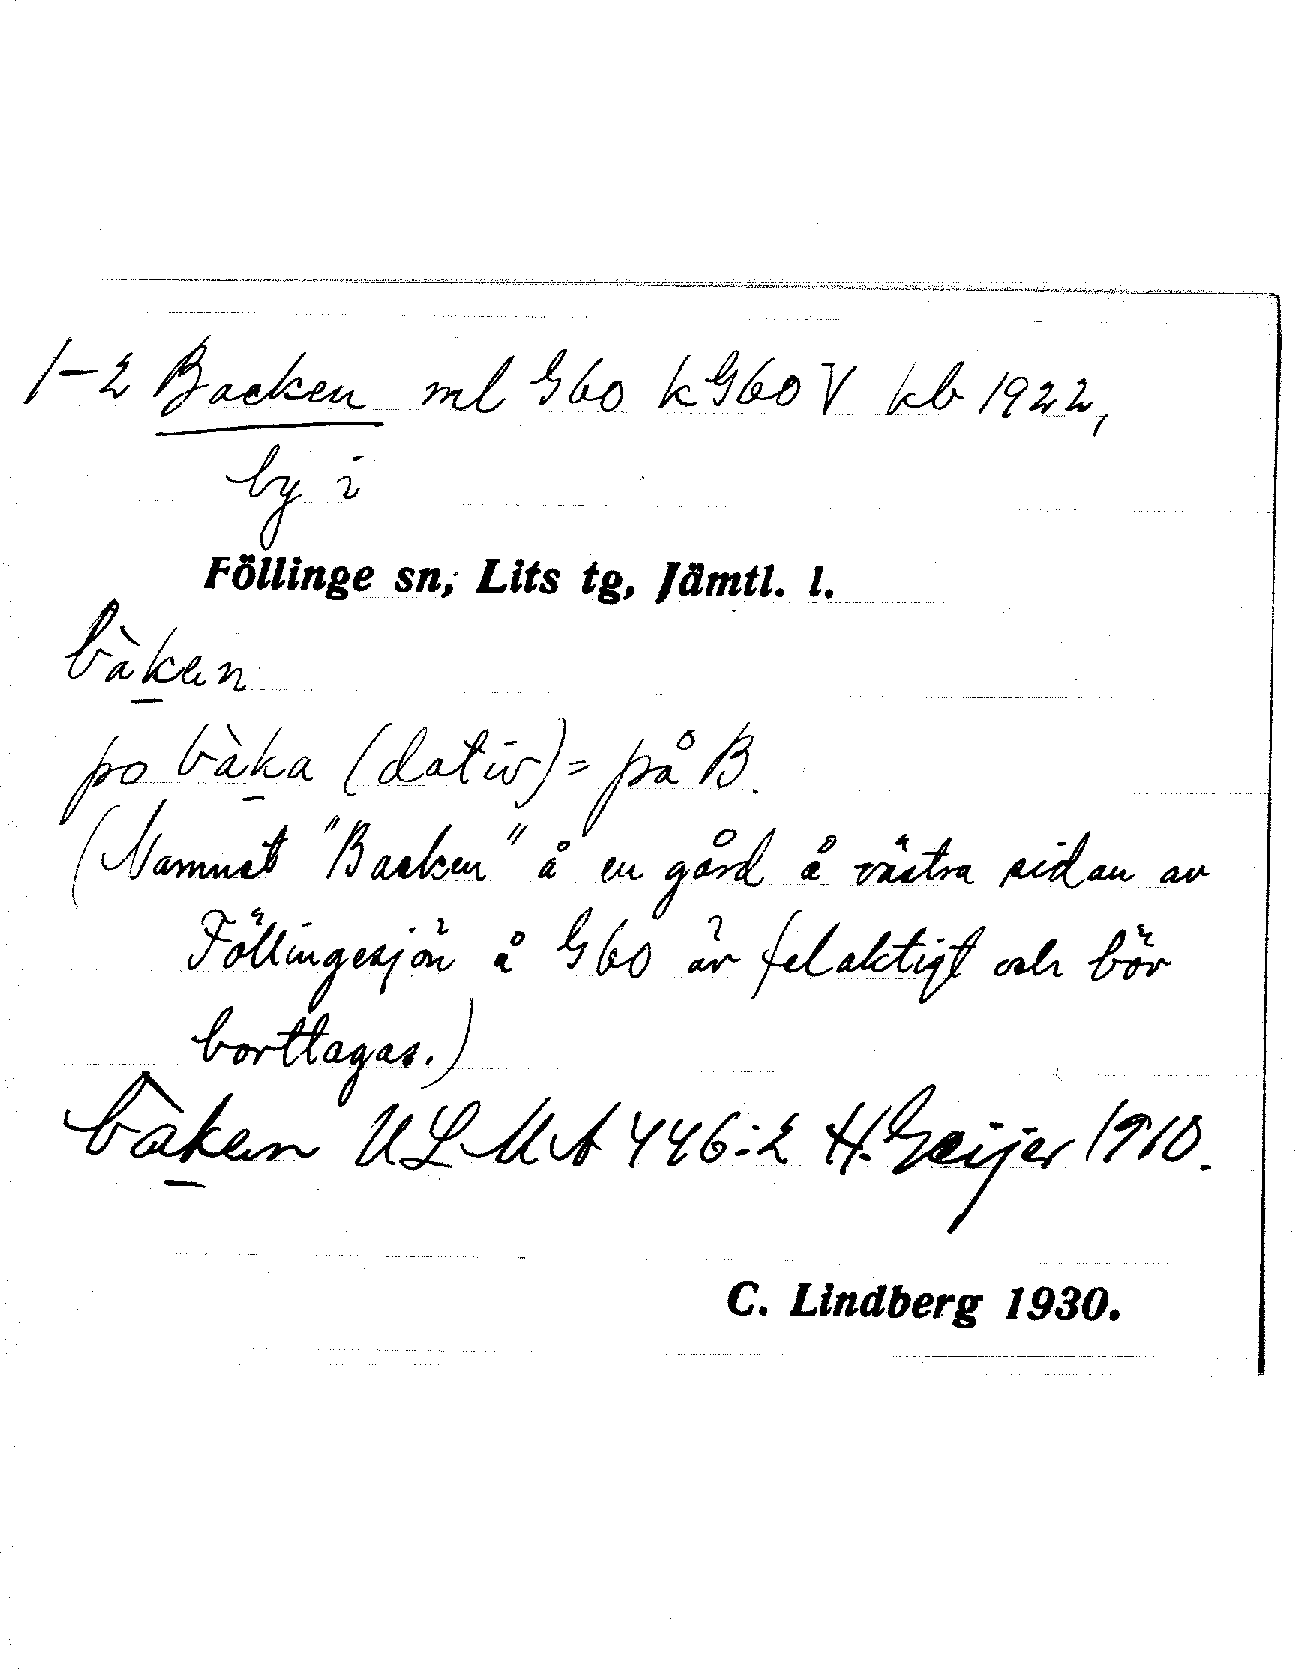 1-2 Backen ml G60 kG60V kb 1922,
by i
Föllinge sn, Lits tg, Jämtl. l.
bàken
po bàka (dativ) = på B.
(Namnet "Backen" å en gård å västra sidan av
Föllingesjön å G60 är felaktigt och bör
borttagas.)
bàken ULMA 446:2 H. Geijer 1910.
C. Lindberg 1930.